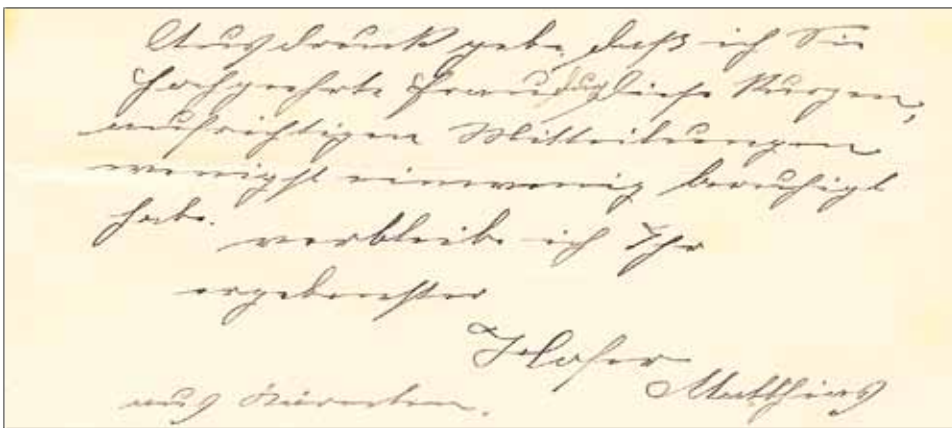 Ausdruck gebe, daß ich Sie
hochgeehrte Frau durch diese kurzen,
aufrichtigen Mitteilungen
wenigst einwenig beruhigt
habe.
verbleibe ich Ihr
ergebenster
Hofer
Matthias
aus Kärnten.